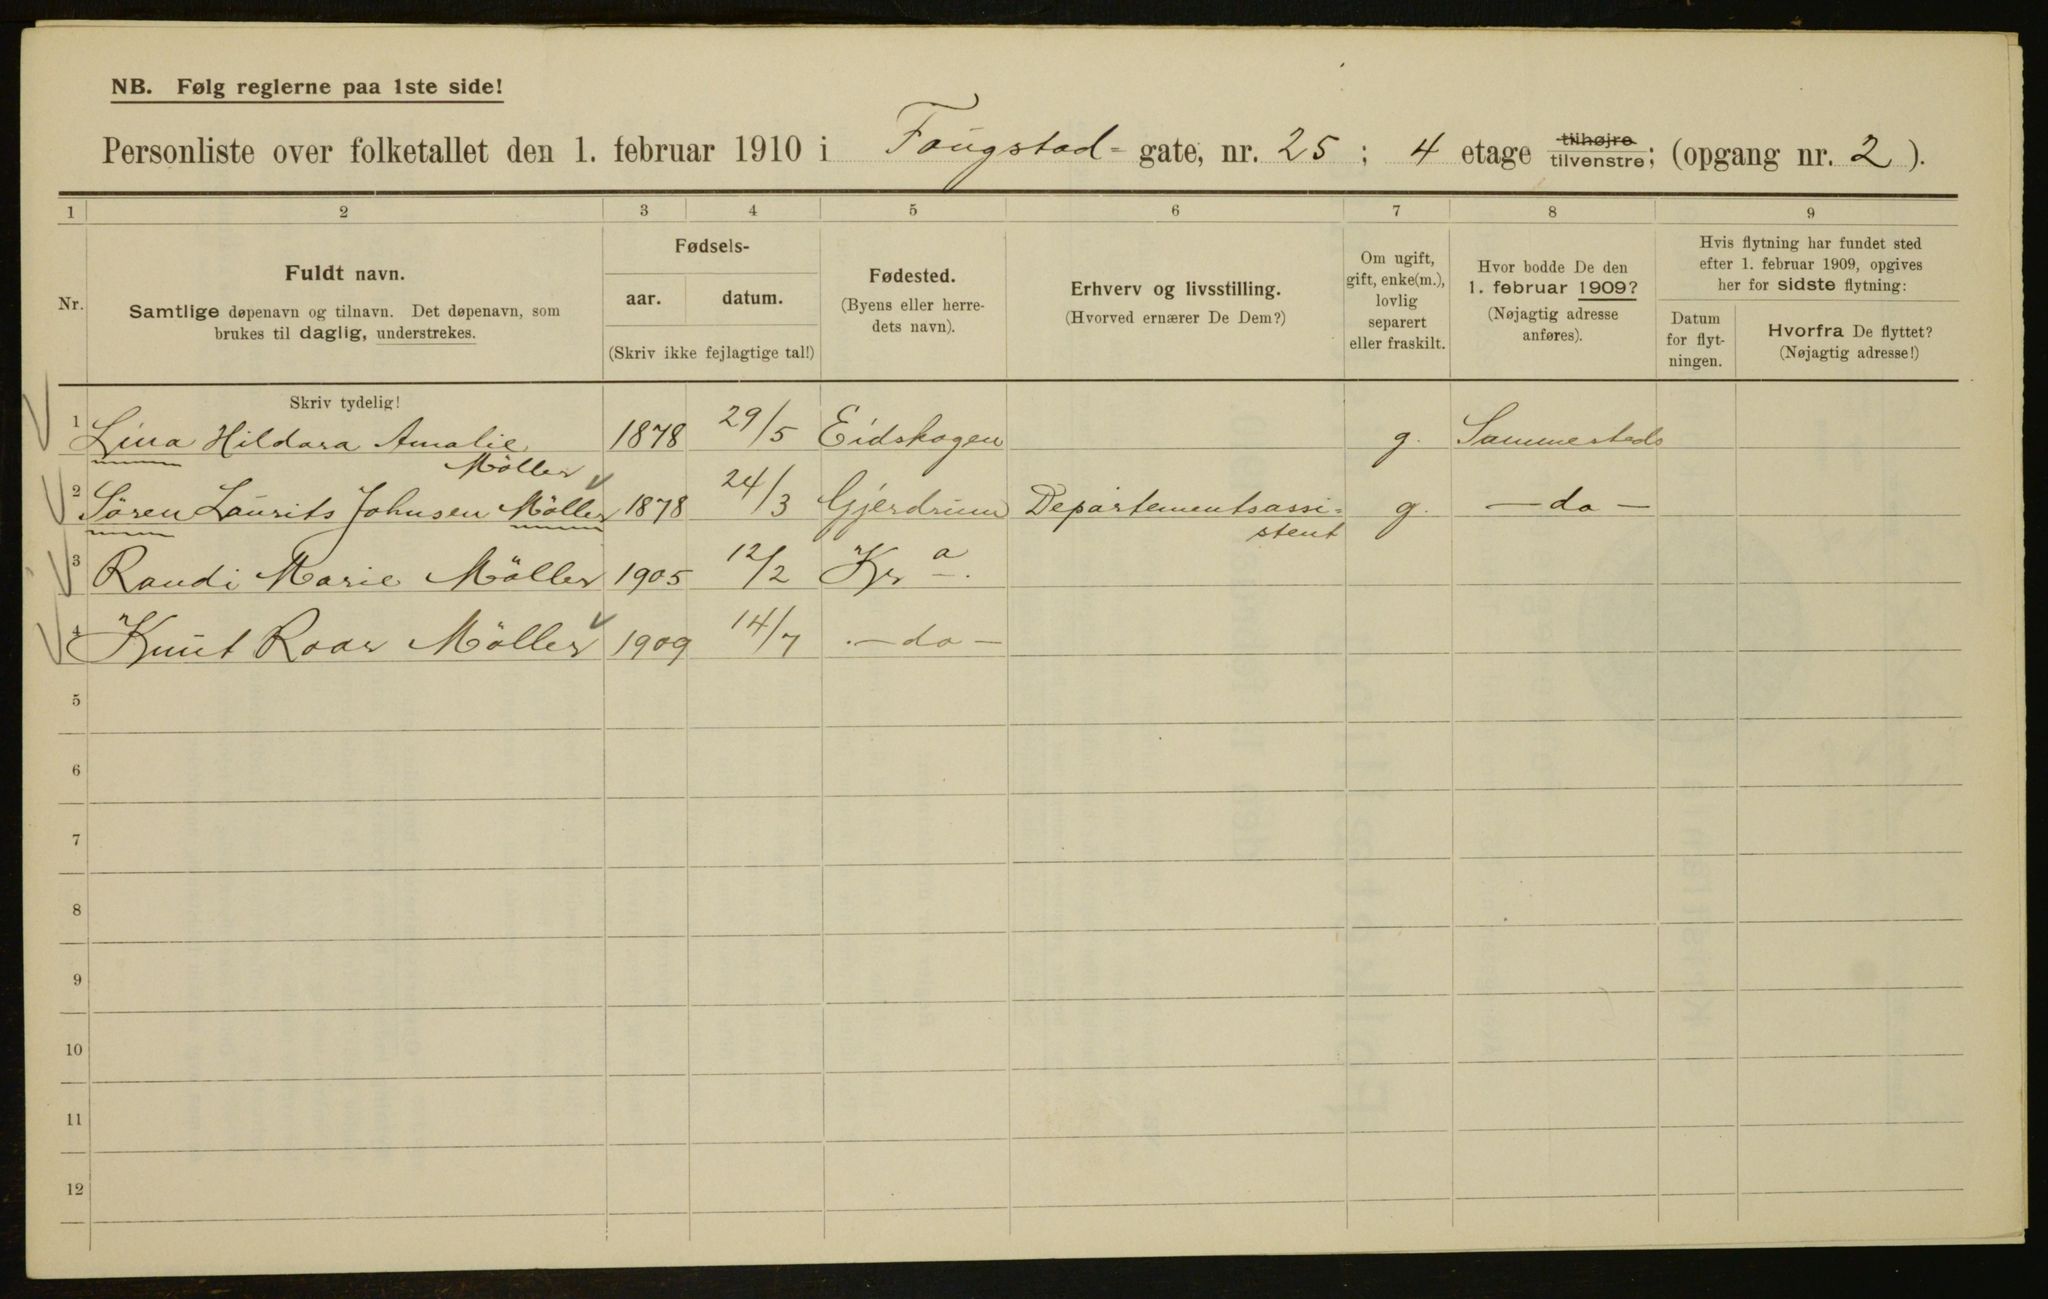 NB. Følg reglerne paa 1ste side!
Personliste over folketallet den 1. februar 1910 i Fougstad- gate, nr. 25; 4 etage tilhøjre tilvenstre; (opgang nr. 2).
1 2 3 4 5 6 7 8 9
Nr.
Fuldt navn.
Samtlige døpenavn og tilnavn. Det døpenavn, som
brukes til daglig, understrekes.
Fødsels-
aar. datum.
(Skriv ikke fejlagtige tal!)
Fødested.
(Byens eller herre-
dets navn).
Erhverv og livsstilling.
(Hvorved ernærer De Dem?)
Om ugift,
gift, enke(m.),
lovlig
separert
eller fraskilt.
Hvor bodde De den
1. februar 1909?
(Nøjagtig adresse
anføres).
Hvis flytning har fundet sted
efter 1. februar 1909, opgives
her for sidste flytning:
Datum
for flyt-
ningen.
Hvorfra De flyttet?
(Nøjagtig adresse!)
Skriv tydelig!
1 Lina Hildara Amalie 1878 29/5 Eidskogen g. Sammesteds
Möller
2 Sören Laurits Johnsen Möller 1878 24/3 Gjerdrum Departementsassi- g. — do —
stent
3 Randi Marie Möller 1905 12/2 Kra.
4 Knut Roar Möller 1909 14/7 — do —
5
6
7
8
9
10
11
12